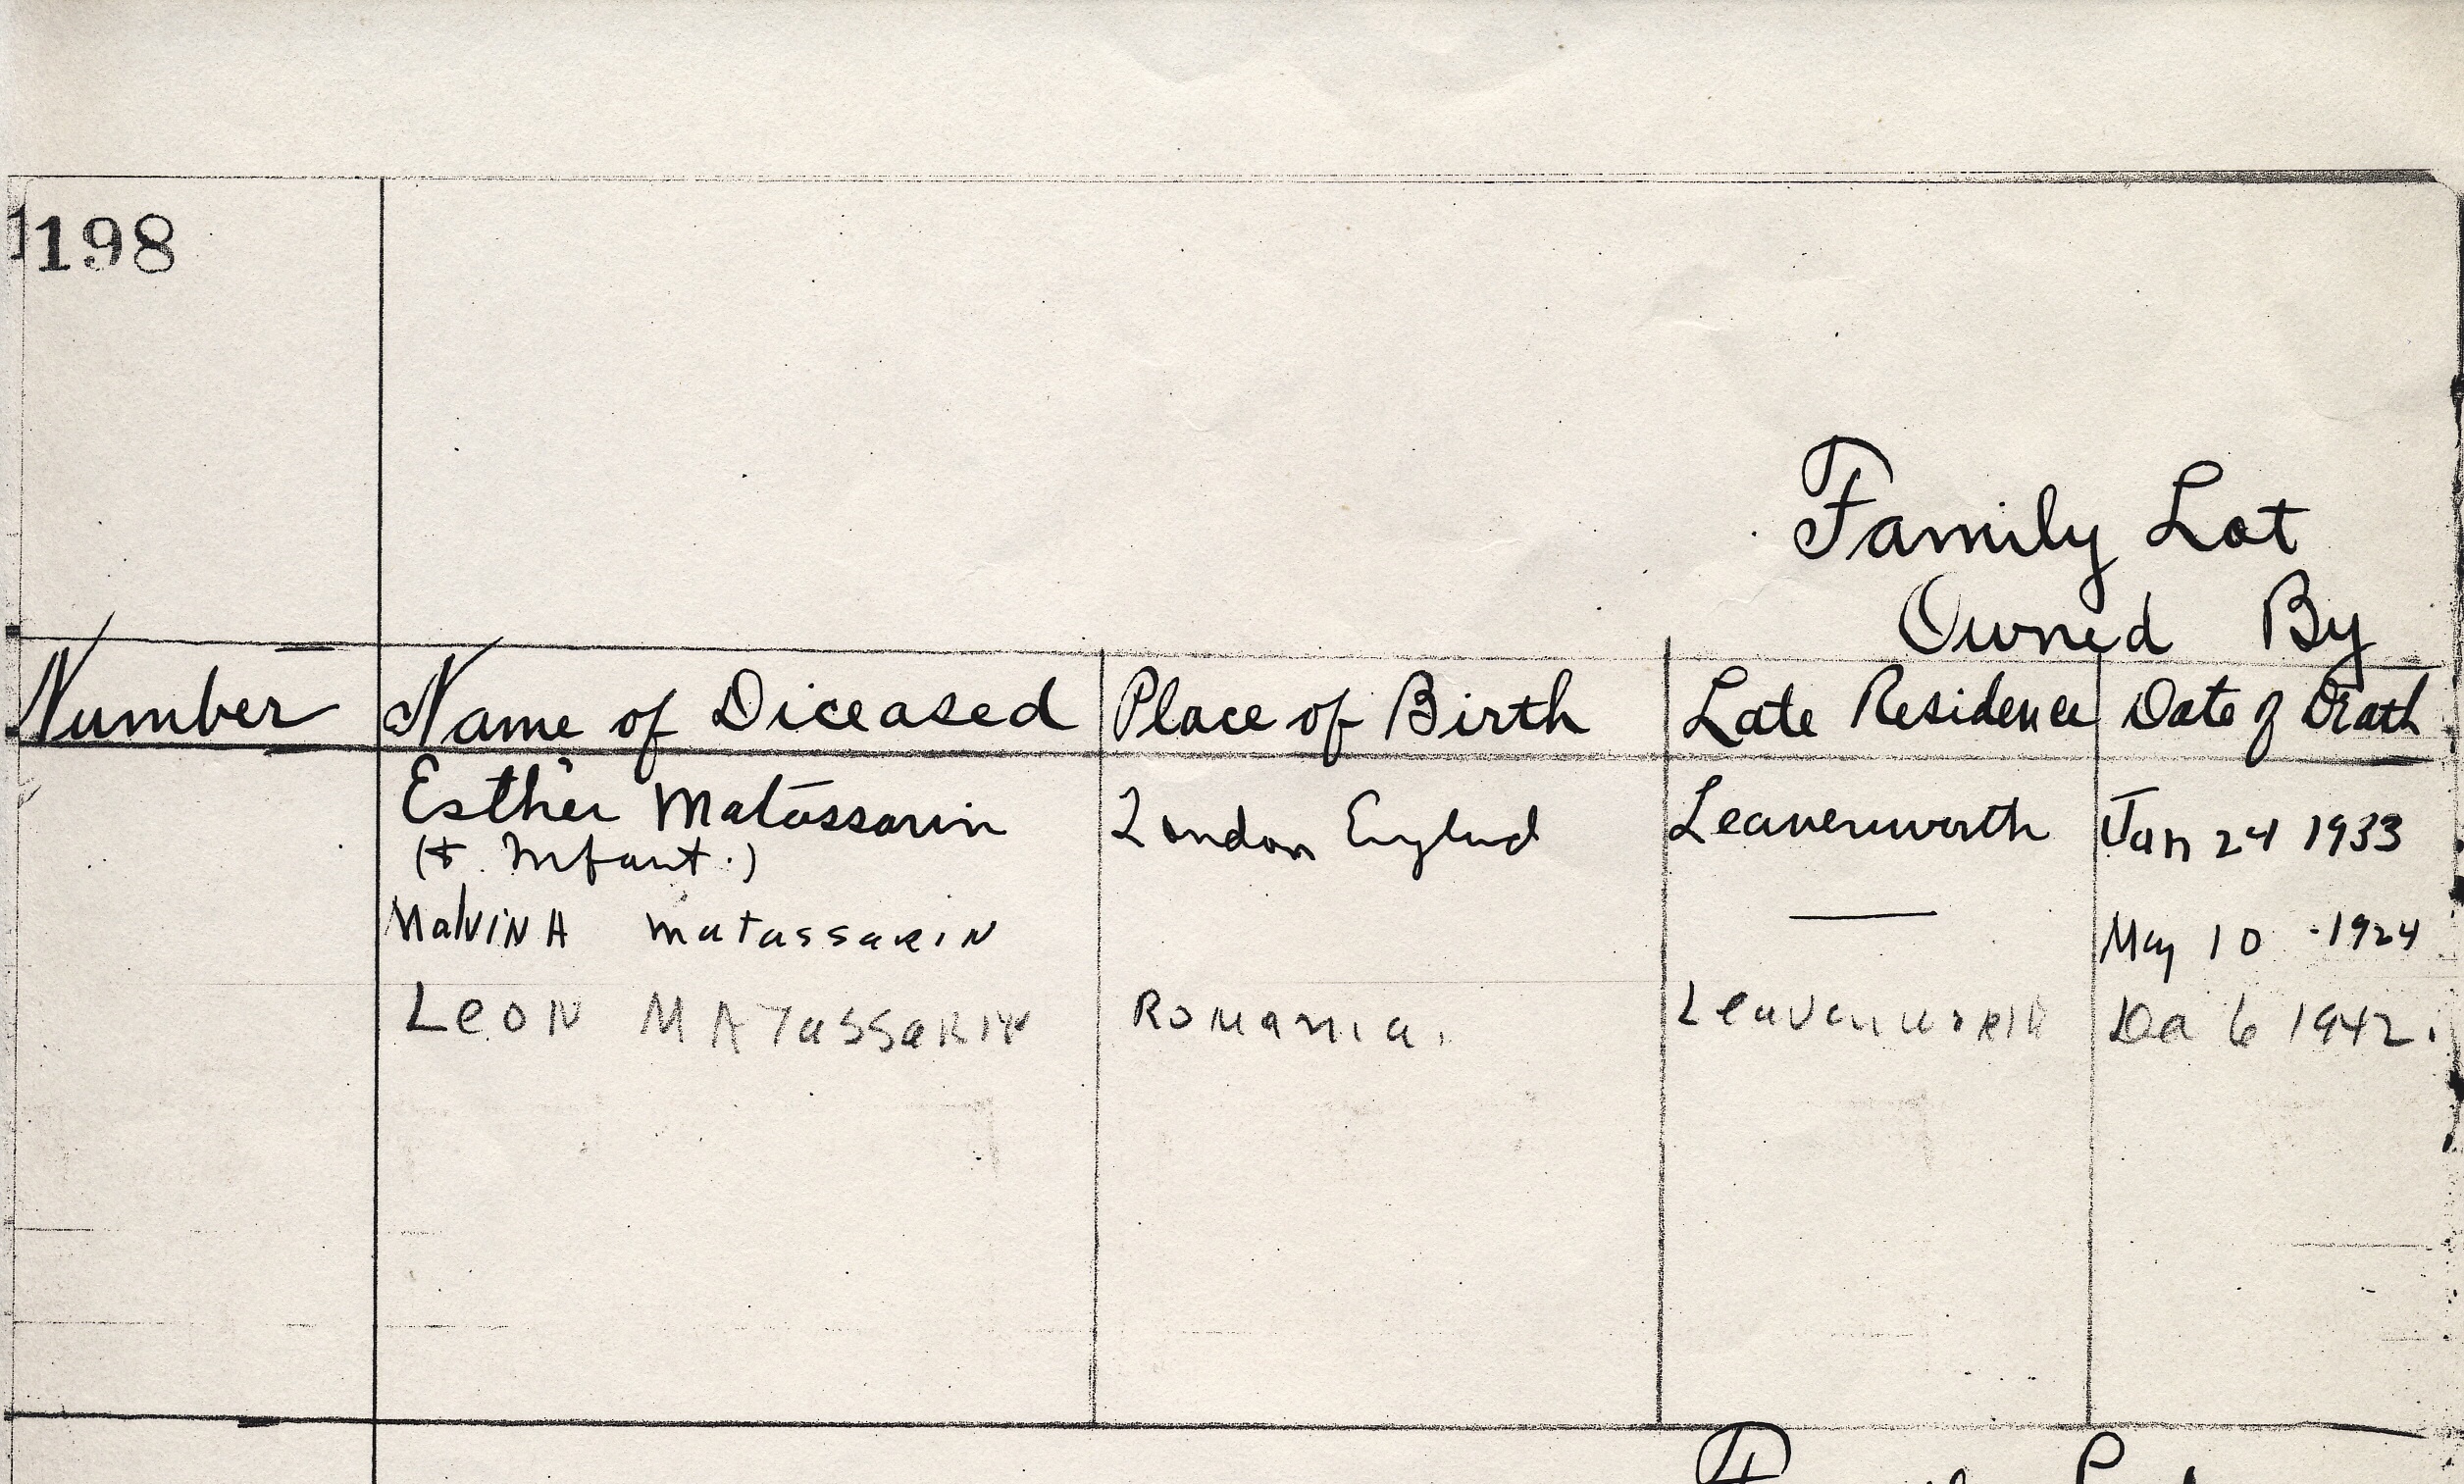 198
Family Lot
Owned By
Number Name of Diceased Place of Birth Late Residence Date of Death
Esther Matassarin London England Leavenworth Jan 24 1933
(+ Infant.)
MalviNA matassariN — May 10 - 1924
LeoN MATassariN Romania. Leavenworth 6 1942.